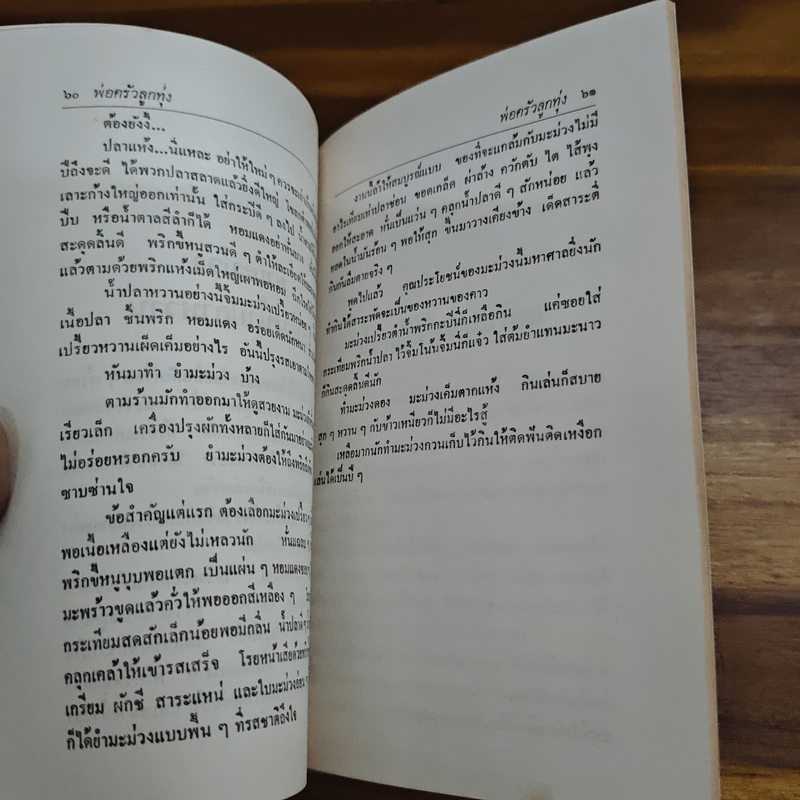 ๖๐ พ่อครัวลูกทุ่ง
ต้องยังงี้...
ปลาแห้ง...นี่แหละ อย่าให้ใหม่ ๆ ควร
ปีถึงจะดี ได้พวกปลาสลาดแล้วยิ่งดีใหญ่
เลาะก้างใหญ่ออกเท่านั้น ใส่กระปิดี ๆ ลงไป
ปี๊บ หรือน้ำตาลสีลำก็ได้ หอมแดงอย่าหั่นบาง
สะดุดลิ้นดี พริกขี้หนูสวนดี ๆ ตำให้ละเอียด
แล้วตามด้วยพริกแห้งเม็ดใหญ่เผาพอหอม
น้ำปลาหวานอย่างนี้จิ้มมะม่วงเปรี้ยวหน่อย ๆ
เนื้อปลา ชิ้นพริก หอมแดง อร่อยเด็ดนักหนา
เปรี้ยวหวานเผ็ดเค็มอย่างไร อันนี้ปรุงรสเอาตาม
หันมาทำ ยำมะม่วง บ้าง
ตามร้านมักทำออกมาให้ดูสวยงาม
เรียวเล็ก เครื่องปรุงผักทั้งหลายก็ใส่กันมา
ไม่อร่อยหรอกครับ ยำมะม่วงต้องให้ถึง
ซาบซ่านใจ
ข้อสำคัญแต่แรก ต้องเลือกมะม่วงเปรี้ยว
พอเนื้อเหลืองแต่ยังไม่เหลวนัก
พริกขี้หนูบุบพอแตก เป็นแผ่น ๆ หอมแดง
มะพร้าวขูดแล้วคั่วให้พอออกสีเหลือง ๆ
กระเทียมสดสักเล็กน้อยพอมีกลิ่น น้ำปลาดี
คลุกเคล้าให้เข้ารสเสร็จ โรยหน้าเสียด้วย
เกรียม ผักชี สาระแหน่ และใบมะม่วงอ่อน
ก็ได้ยำมะม่วงแบบพื้น ๆ ที่รสชาติถึงใจ
พ่อครัวลูกทุ่ง ๖๑
งานนี้ถ้าให้สมบูรณ์แบบ ของที่จะแกล้มกับมะม่วงไม่มี
อะไรเทียมเท่าปลาช่อน ขอดเกล็ด ผ่าล้าง ควักตับ ไต ไส้พุง
ออกให้สะอาด หั่นเป็นแว่น ๆ คลุกน้ำปลาดี ๆ สักหน่อย แล้ว
ทอดในน้ำมันร้อน ๆ พอให้สุก ขึ้นมาวางเคียงข้าง เด็ดสาระตี่
กินกันลืมตายจริง ๆ
พูดไปแล้ว คุณประโยชน์ของมะม่วงนี้มหาศาลยิ่งนัก
ทำกินได้สาระพัดจะเป็นของหวานของคาว
มะม่วงเปรี้ยวตำน้ำพริกกะปินี่ก็เหลือกิน แค่ซอยใส่
กระเทียมพริกน้ำปลา ไว้จิ้มโน้นจิ้มนี่ก็แจ๋ว ใส่ต้มยำแทนมะนาว
ก็กินสะดุดลิ้นดีนัก
ทำมะม่วงดอง มะม่วงเค็มตากแห้ง กินเล่นก็สบาย
สุก ๆ หวาน ๆ กับข้าวเหนียวก็ไม่มีอะไรสู้
เหลือมากนักทำมะม่วงกวนเก็บไว้กินให้ติดฟันติดเหงือก
เล่นได้เป็นปี ๆ